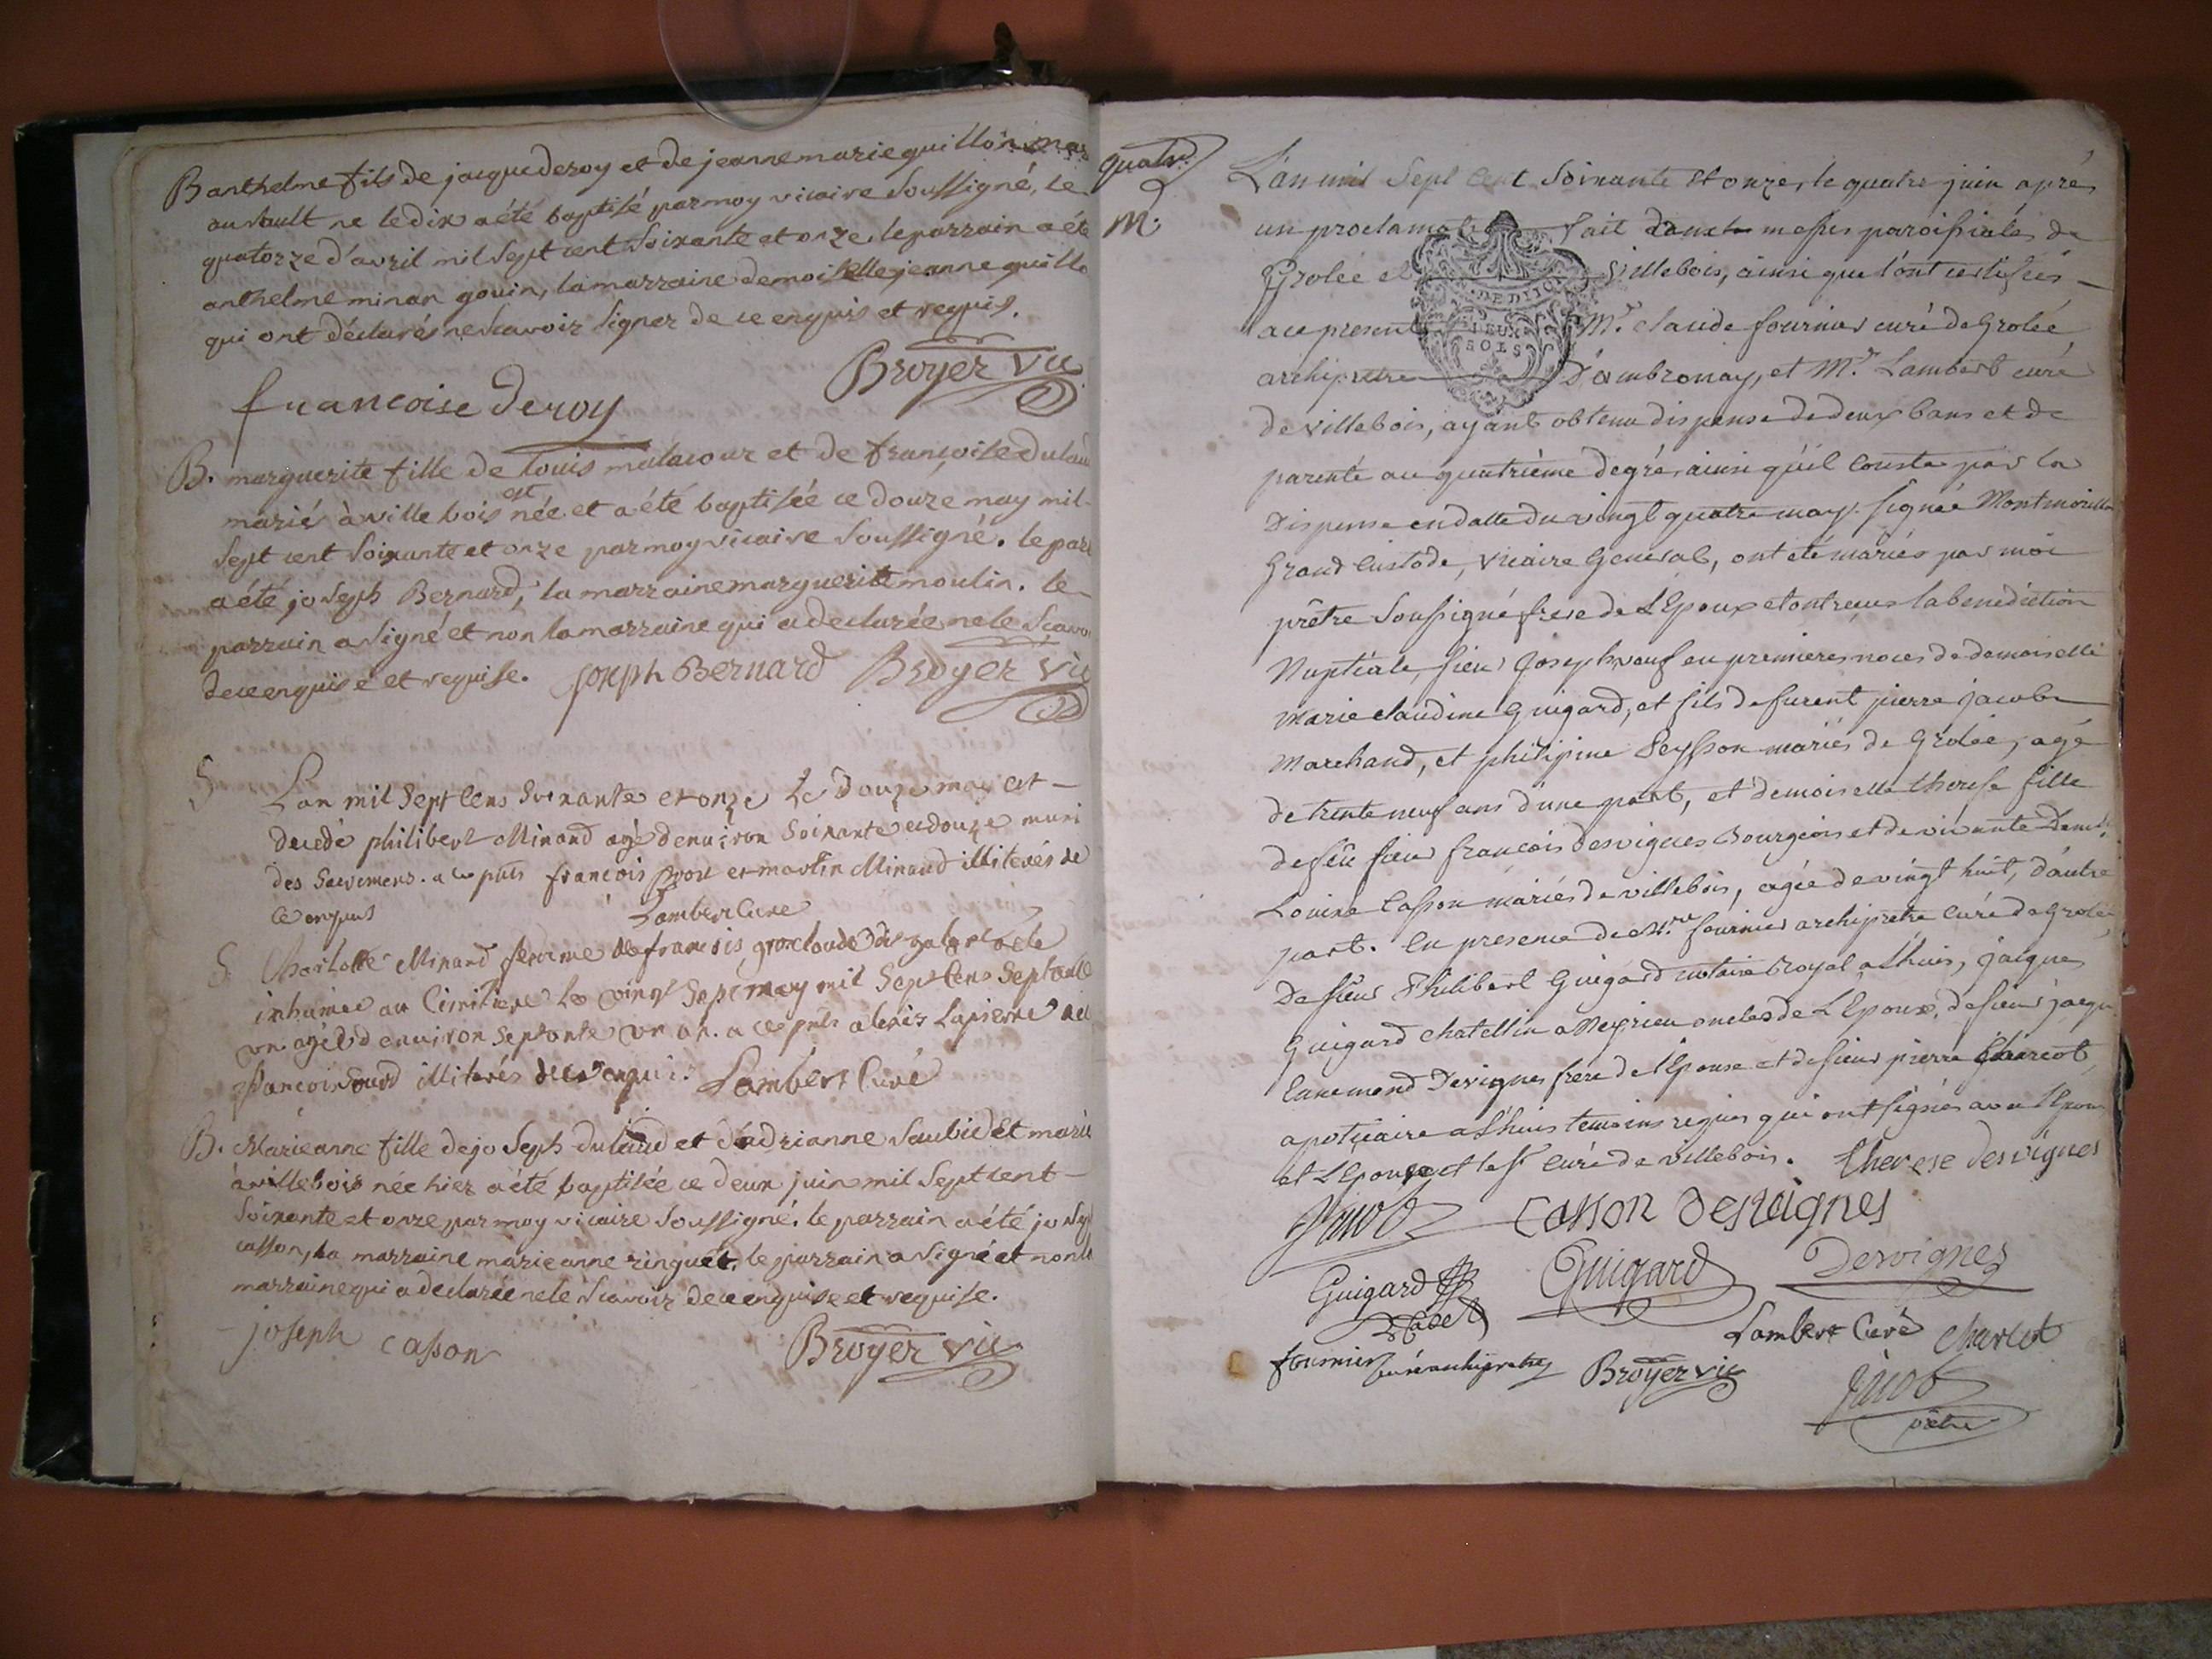 B anthelme fils de jacque deroy et de jeanne marie guillon
au sault ne le dix a été baptisé par moy vicaire soussigné, le
quatorze d'avril mil sept cent soixante et onze. le parrain a été
anthelme minan gouin, la marraine demoiselle jeanne guillo
qui ont déclarés ne scavoir signer de ce enquis et requis.
Broyer vic
francoise deroy
B. marguerite fille de louis malacour et de françoise dulau
mariés à ville bois est née et a été baptisée ce douze may mil
sept cent soixante et onze par moy vicaire soussigné. le parr
a été joseph Bernard, la marraine marguerite moulin. le
parrain a signé et non la marraine qui a declarée ne le scavo
de ce enquise et requise. joseph Bernard Broyer vic
S Lan mil sept cens soixante et onze Le douze may est
decedé philibert Minand agé denviron soixante et douze muni
des sacremens. a ce pnts francois et martin Minand illiterés de
ce enquis Lambert Curé
S. Charlotte Minand femme de francois grosclaude a été
inhumée au Cimitiere le vingt sept may mil sept cens septante
un agée d'environ septante un an. a ce pnts alexis Lapierre
francois illiterés de ce enquis. Lambert Curé
B. Marie anne fille de joseph dulaud et d'adrianne saubidet marié
à villebois née hier a été baptisée ce deux juin mil sept cent
soixante et onze par moy vicaire soussigné. le parrain a été joseph
casson, la marraine marie anne ringuet. le parrain a signé et non la
marraine qui a declarée ne le scavoir de ce enquise et requise.
joseph casson Broyer vic
quatr.
M.
L'an mil sept cent soixante et onze, le quatre juin aprés
un proclamat fait messes paroissiales de
Grolée et Villebois, ainsi que l'ont certifiés
a ce present Mr. claude fournier curé de Grolée
archipretre D'ambronay, et Mr. Lambert curé
DE DIJON
DEUX
SOLS
de villebois, ayant obtenu dispense de deux bans et de
parenté au quatrième degré, ainsi qu'il conste par la
Dispense en datte du vingt quatre may. signée Montmorillon
Grand Custode, vicaire General, ont été mariés par moi
prêtre soussigné frere de L'Epoux et ont recus la benediction
Nuptiale, sieur Joseph veuf en premieres noces de demoiselle
marie claudine Guigard, et fils de furent pierre jacob
marchand, et philipine Peysson mariés de Grolée, agé
de trente neuf ans d'une part, et demoiselle therese fille
de feu sieur francois desvignes Bourgeois et de vivante Demlle
Louise Casson mariés de villebois, agée de vingt huit, d'autre
part. En presence de Mre. fournier archipretre curé de Grolée,
De sieur Philibert Guigard notaire Royal a Lhuis, jacque
Guigard chatellin a Meyrieu oncles de L'Epoux, de sieur jacque
Ennemond Devignes frere de l'Epouse et de sieur pierre Charcot
apoticaire a Lhuis temoins requis qui ont signés avec L'Epoux
et L'Epouse et le sr curé de villebois. therese desvignes
Jacob casson desvaignes
Guigard Guigard Desvignes
Lambert Curé charcot
fournier curé archipretre Broyer vic
Jacob
pretre